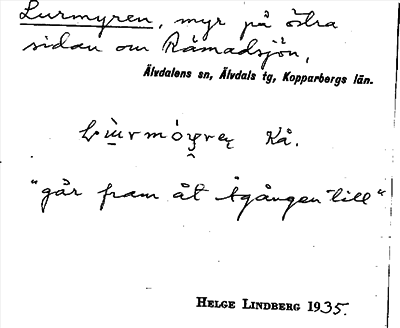 Lurmyren, myr på östra
sidan om Råmadsjön,
Älvdalens sn, Älvdals tg, Kopparbergs län.
Kå.
"går fram åt tgången till"
HELGE LINDBERG 1935.